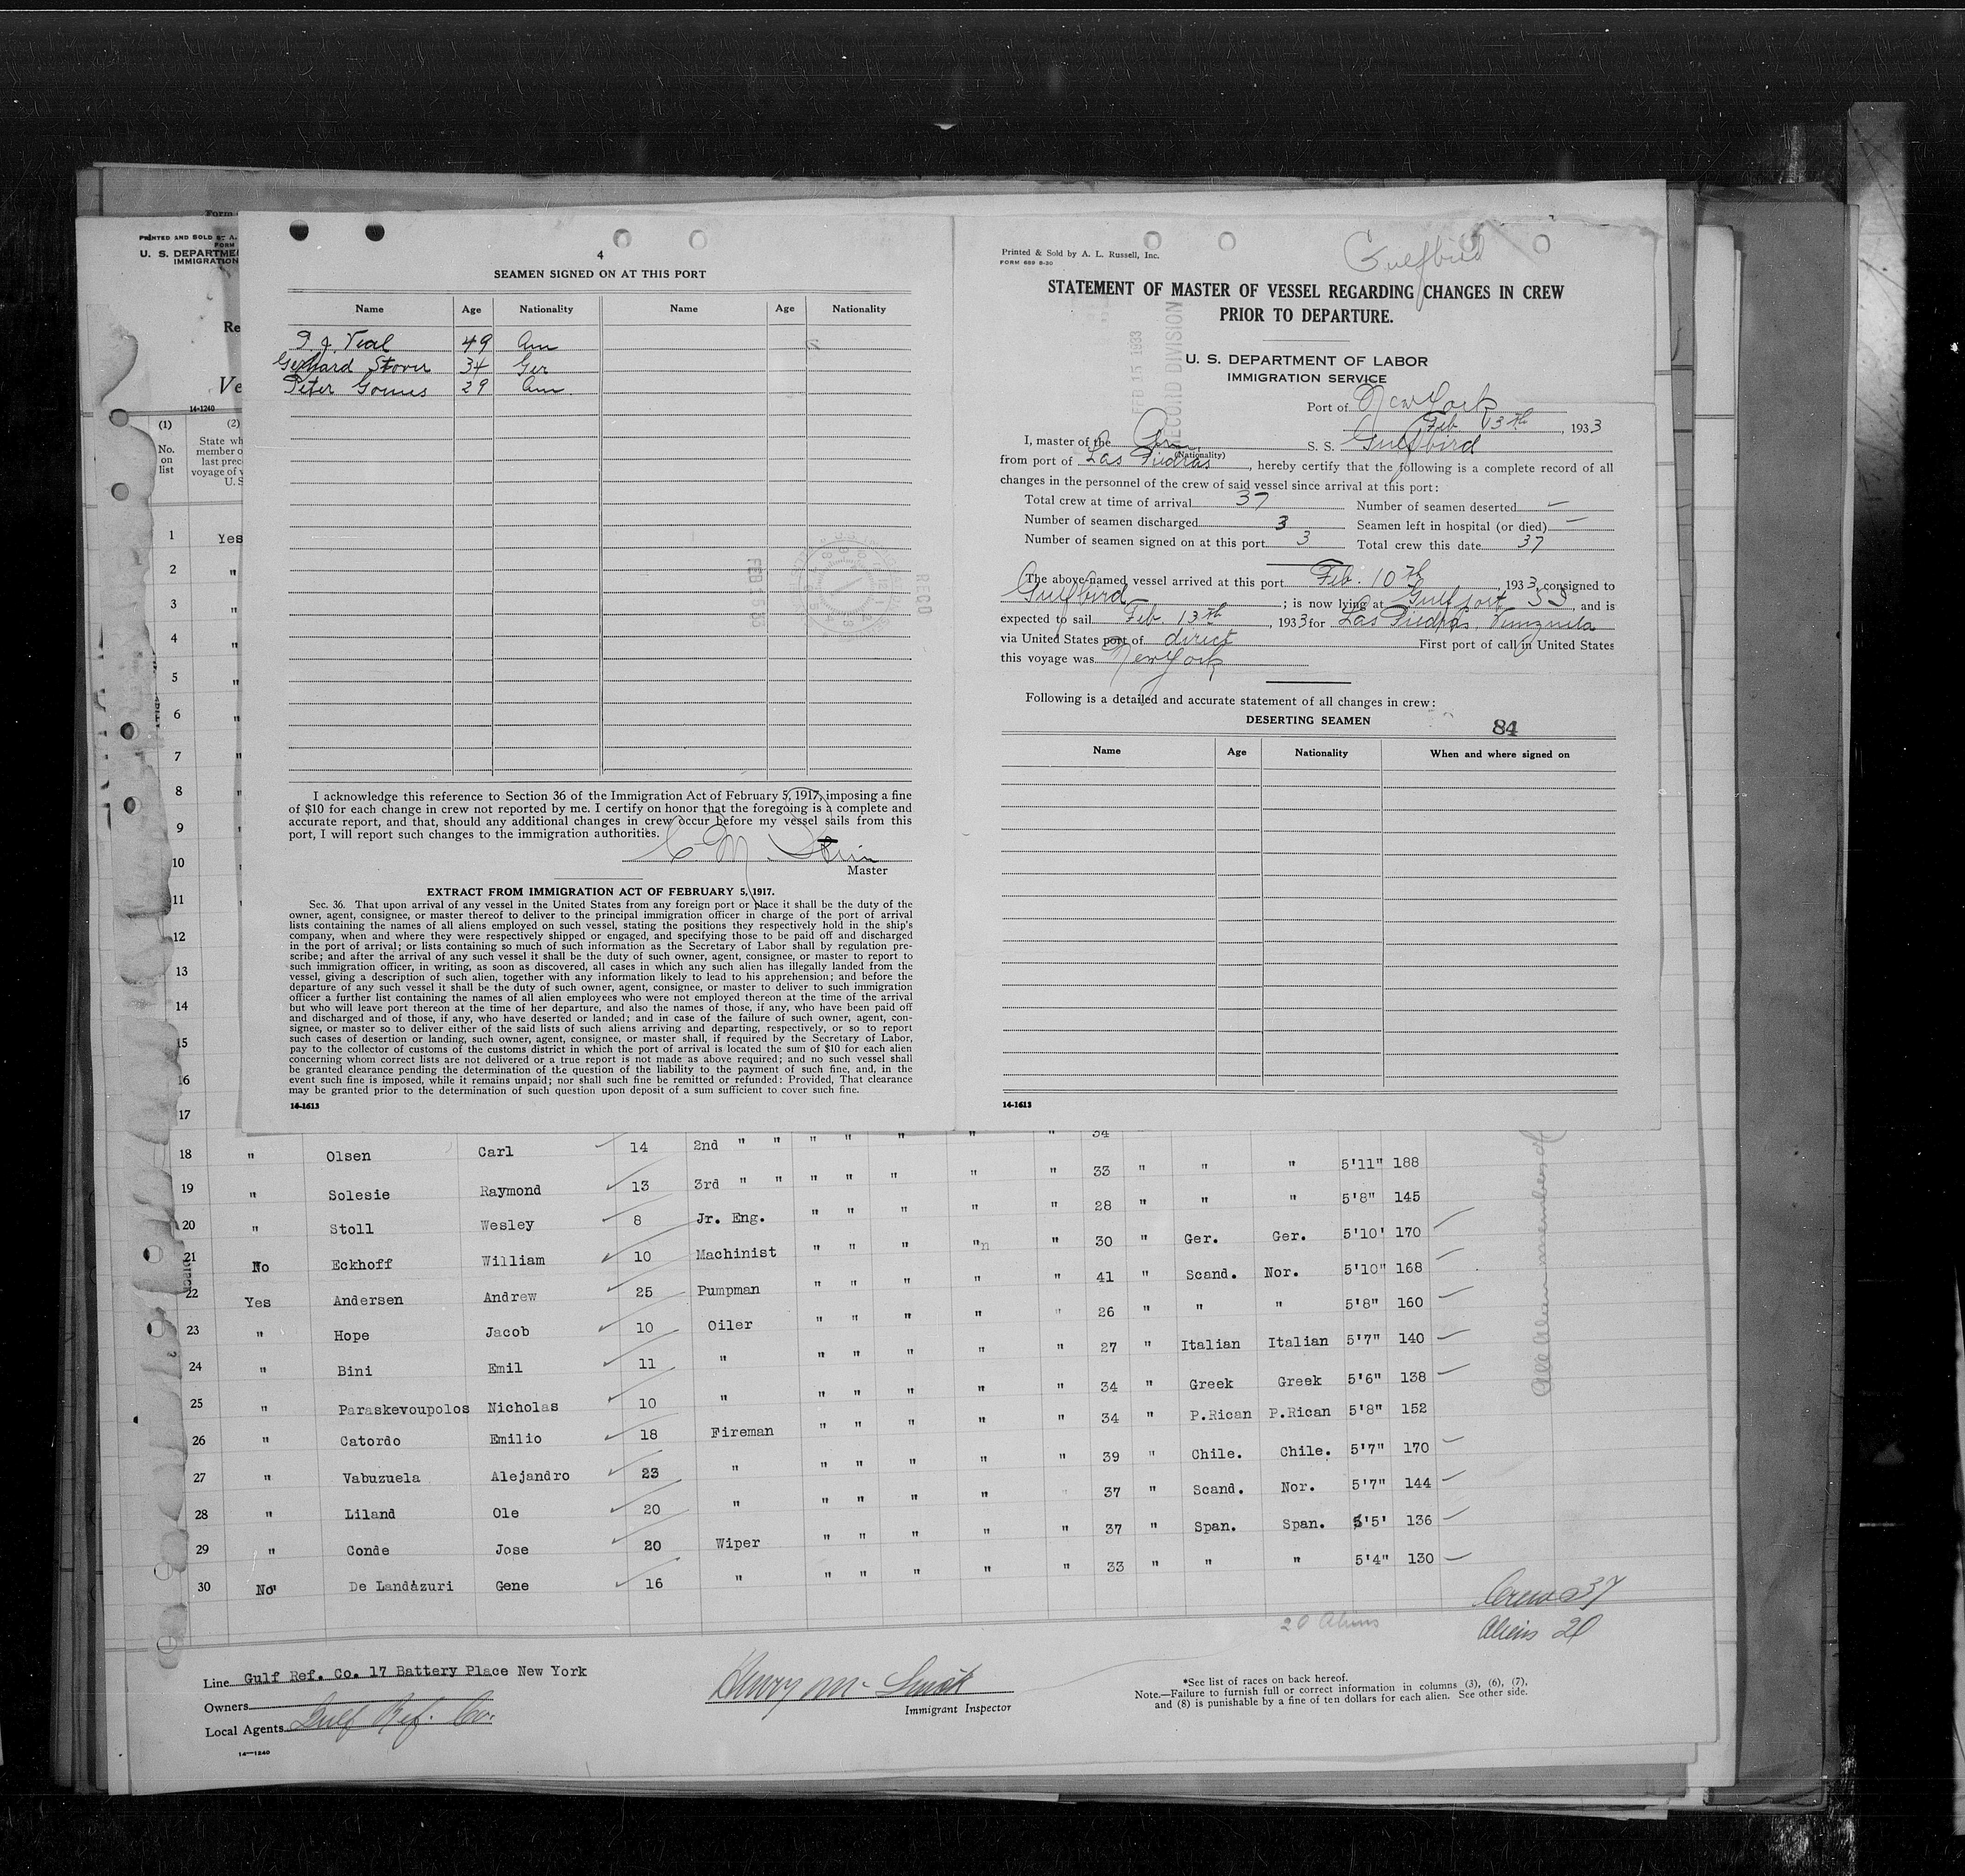 4
SEAMEN SIGNED ON AT THIS PORT
Name Age Nationality Name Age Nationality
P. J. Veal 49 Am
Gerhard Stover 34 Ger
Peter Gomes 29 Am.
I acknowledge this reference to Section 36 of the Immigration Act of February 5, 1917, imposing a fine
of $10 for each change in crew not reported by me. I certify on honor that the foregoing is a complete and
accurate report, and that, should any additional changes in crew occur before my vessel sails from this
port, I will report such changes to the immigration authorities.
C M.
Master
EXTRACT FROM IMMIGRATION ACT OF FEBRUARY 5, 1917.
Sec. 36. That upon arrival of any vessel in the United States from any foreign port or place it shall be the duty of the
owner, agent, consignee, or master thereof to deliver to the principal immigration officer in charge of the port of arrival
lists containing the names of all aliens employed on such vessel, stating the positions they respectively hold in the ship's
company, when and where they were respectively shipped or engaged, and specifying those to be paid off and discharged
in the port of arrival; or lists containing so much of such information as the Secretary of Labor shall by regulation pre-
scribe; and after the arrival of any such vessel it shall be the duty of such owner, agent, consignee, or master to report to
such immigration officer, in writing, as soon as discovered, all cases in which any such alien has illegally landed from the
vessel, giving a description of such alien, together with any information likely to lead to his apprehension; and before the
departure of any such vessel it shall be the duty of such owner, agent, consignee, or master to deliver to such immigration
officer a further list containing the names of all alien employees who were not employed thereon at the time of the arrival
but who will leave port thereon at the time of her departure, and also the names of those, if any, who have been paid off
and discharged and of those, if any, who have deserted or landed; and in case of the failure of such owner, agent, con-
signee, or master so to deliver either of the said lists of such aliens arriving and departing, respectively, or so to report
such cases of desertion or landing, such owner, agent, consignee, or master shall, if required by the Secretary of Labor,
pay to the collector of customs of the customs district in which the port of arrival is located the sum of $10 for each alien
concerning whom correct lists are not delivered or a true report is not made as above required; and no such vessel shall
be granted clearance pending the determination of the question of the liability to the payment of such fine, and, in the
event such fine is imposed, while it remains unpaid; nor shall such fine be remitted or refunded: Provided, That clearance
may be granted prior to the determination of such question upon deposit of a sum sufficient to cover such fine.
14-1613
Gulfbird
Printed & Sold by A. L. Russell, Inc.
FORM 689 6-30
STATEMENT OF MASTER OF VESSEL REGARDING CHANGES IN CREW
PRIOR TO DEPARTURE.
FEB 15 1933
RECORD DIVISION
U. S. DEPARTMENT OF LABOR
IMMIGRATION SERVICE
Port of New York
Feb 13th, 1933
I, master of the Am S. S. Gulfbird
(Nationality)
from port of Las Piedras, hereby certify that the following is a complete record of all
changes in the personnel of the crew of said vessel since arrival at this port:
Total crew at time of arrival 37 Number of seamen deserted —
Number of seamen discharged 3 Seamen left in hospital (or died) —
Number of seamen signed on at this port 3 Total crew this date 37
The above-named vessel arrived at this port Feb. 10th, 1933, consigned to
Gulfbird; is now lying at Gulfport SI, and is
expected to sail Feb. 13th, 1933 for Las Piedras, Venzuela
via United States port of direct First port of call in United States
this voyage was New York
Following is a detailed and accurate statement of all changes in crew:
DESERTING SEAMEN 84
Name Age Nationality When and where signed on
14-1613
PRINTED AND SOLD BY A.
FORM
U. S. DEPARTME
IMMIGRATION
Re
Ve
14-1240
(1) (2)
No. on list
State wh
member o
last prec
voyage of v
U. S
1 Yes
2 "
3 "
4 "
5 "
6 "
7 "
8
9
10
11
12
13
14
15
16
17 34
18 " Olsen Carl 14 2nd " " " " " " " 33 " " " 5'11" 188
19 " Solesie Raymond 13 3rd " " " " " " " 28 " " " 5'8" 145
20 " Stoll Wesley 8 Jr. Eng. " " " " " 30 " Ger. Ger. 5'10' 170
21 No Eckhoff William 10 Machinist " " " " " 41 " Scand. Nor. 5'10" 168
22 Yes Andersen Andrew 25 Pumpman " " " " " 26 " " " 5'8" 160
23 " Hope Jacob 10 Oiler " " " " " 27 " Italian Italian 5'7" 140
24 " Bini Emil 11 " " " " " " 34 " Greek Greek 5'6" 138
25 " Paraskevoupolos Nicholas 10 " " " " " " 34 " P.Rican P.Rican 5'8" 152
26 " Catordo Emilio 18 Fireman " " " " " 39 " Chile. Chile. 5'7" 170
27 " Vabuzuela Alejandro 23 " " " " " " 37 " Scand. Nor. 5'7" 144
28 " Liland Ole 20 " " " " " " 37 " Span. Span. 5'5' 136
29 " Conde Jose 20 Wiper " " " " " 33 " " " 5'4" 130
30 No De Landazuri Gene 16 " " " " "
All Alien members of
20 Aliens
Crew 37
Aliens 20
Line Gulf Ref. Co. 17 Battery Place New York
Owners
Local Agents Gulf Ref. Co.
14—1240
Henry M. Smith
Immigrant Inspector
*See list of races on back hereof.
Note.—Failure to furnish full or correct information in columns (3), (6), (7),
and (8) is punishable by a fine of ten dollars for each alien. See other side.